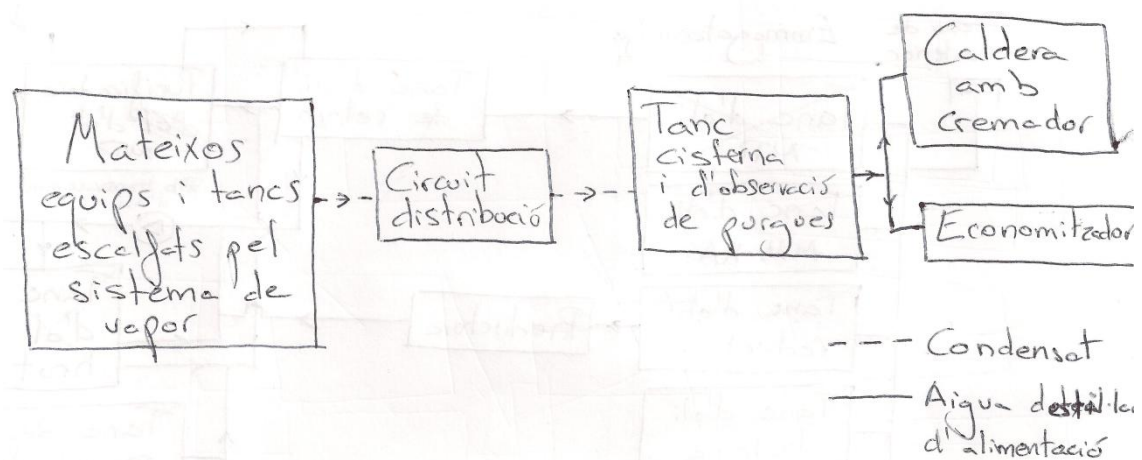 Mateixos
equips i tancs
escalfats pel
sistema de
vapor
Circuit
distribució
Tanc
cisterna
i d'observació
de purgues
Caldera
amb
cremador
Economitzador
Condensat
Aigua
d'alimentació